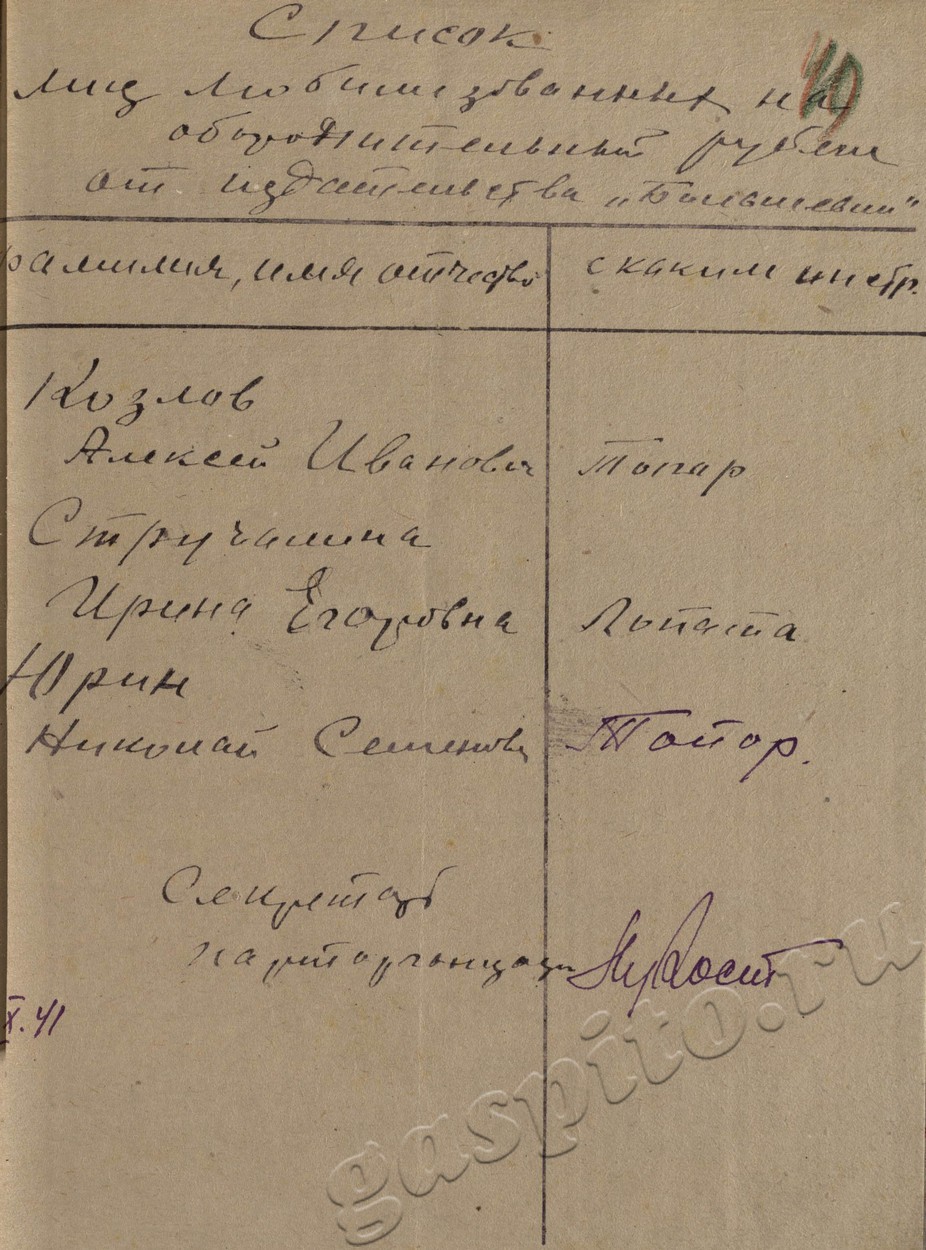 Список
лиц мобилизованных на
оборонительный рубеж
от издательства „Большевик"
фамилия, имя отчество с каким инстр.
Козлов
Алексей Иванович Топар
Стручалина
Ирина Егоровна Лопата
Юрин
Николай Семенович Топор.
Секретарь
парторганизации
X.41
gaspito.ru